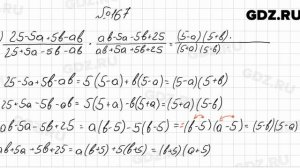 №167
GDZ.RU
) 25-5a+5b-ab / 25+5a-5b-ab · ab-5a-5b+25 / ab+5a+5b+25 = (5-a)(5-b) / (5+a)(5+b).
25-5a+5b-ab = 5(5-a)+b(5-a) = (5-a)(5+b)
25+5a-5b-ab = 5(5+a)-b(5+a) = (5+a)(5-b)
ab-5a-5b+25 = a(b-5)-5(b-5) = (b-5)(a-5) = (5-b)(5-a)
ab+5a+5b+25 = a(b+5)+5(b+5) = (b+5)(a+5)
GDZ.RU